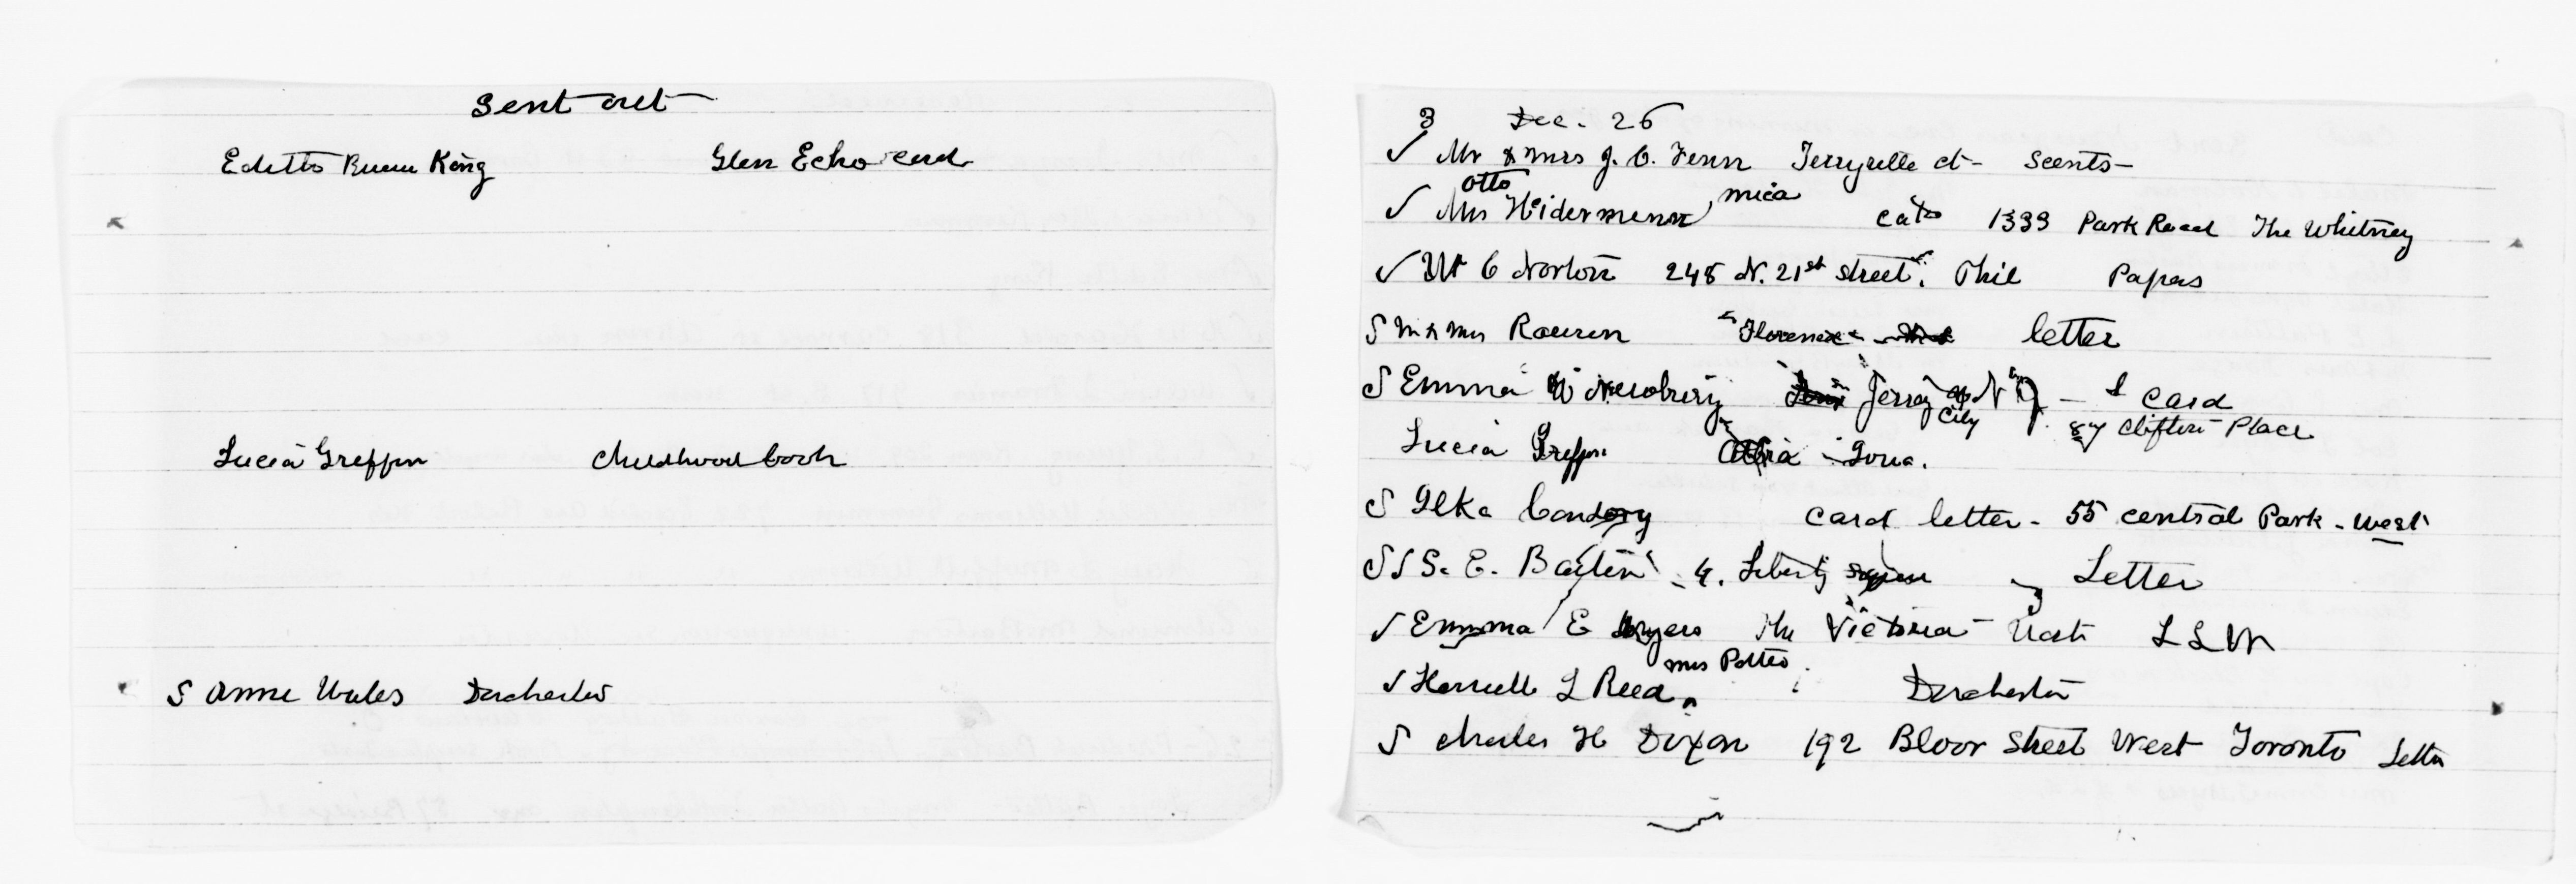 Sent out
Editto King Glen Echo card
Lucia Greffin Childhood book
S Anne Wales Dorchester
3 Dec. 26
✓ Mr & Mrs J. C. Fenn Terryville ct - Scents -
Otto mica
✓ Mrs Heidermenn, cats 1333 Park Road The Whitney
✓ C Norton 248 N. 21st street. Phil Papers
S M & Mrs Rauren "Florence" letter
S Emma W Newbury Jersey City N J - card
87 Clifton Place
Lucia Greffin Albia - Iowa.
S Ilka card letter - 55 central Park - West
S S S. E. 4. Liberty Square Letter
✓ Emma E Myers The Victoria L L W
Mrs Potter
✓ L Reed. Dorchester
S Charles H Dixon 192 Bloor Street West Toronto Letter